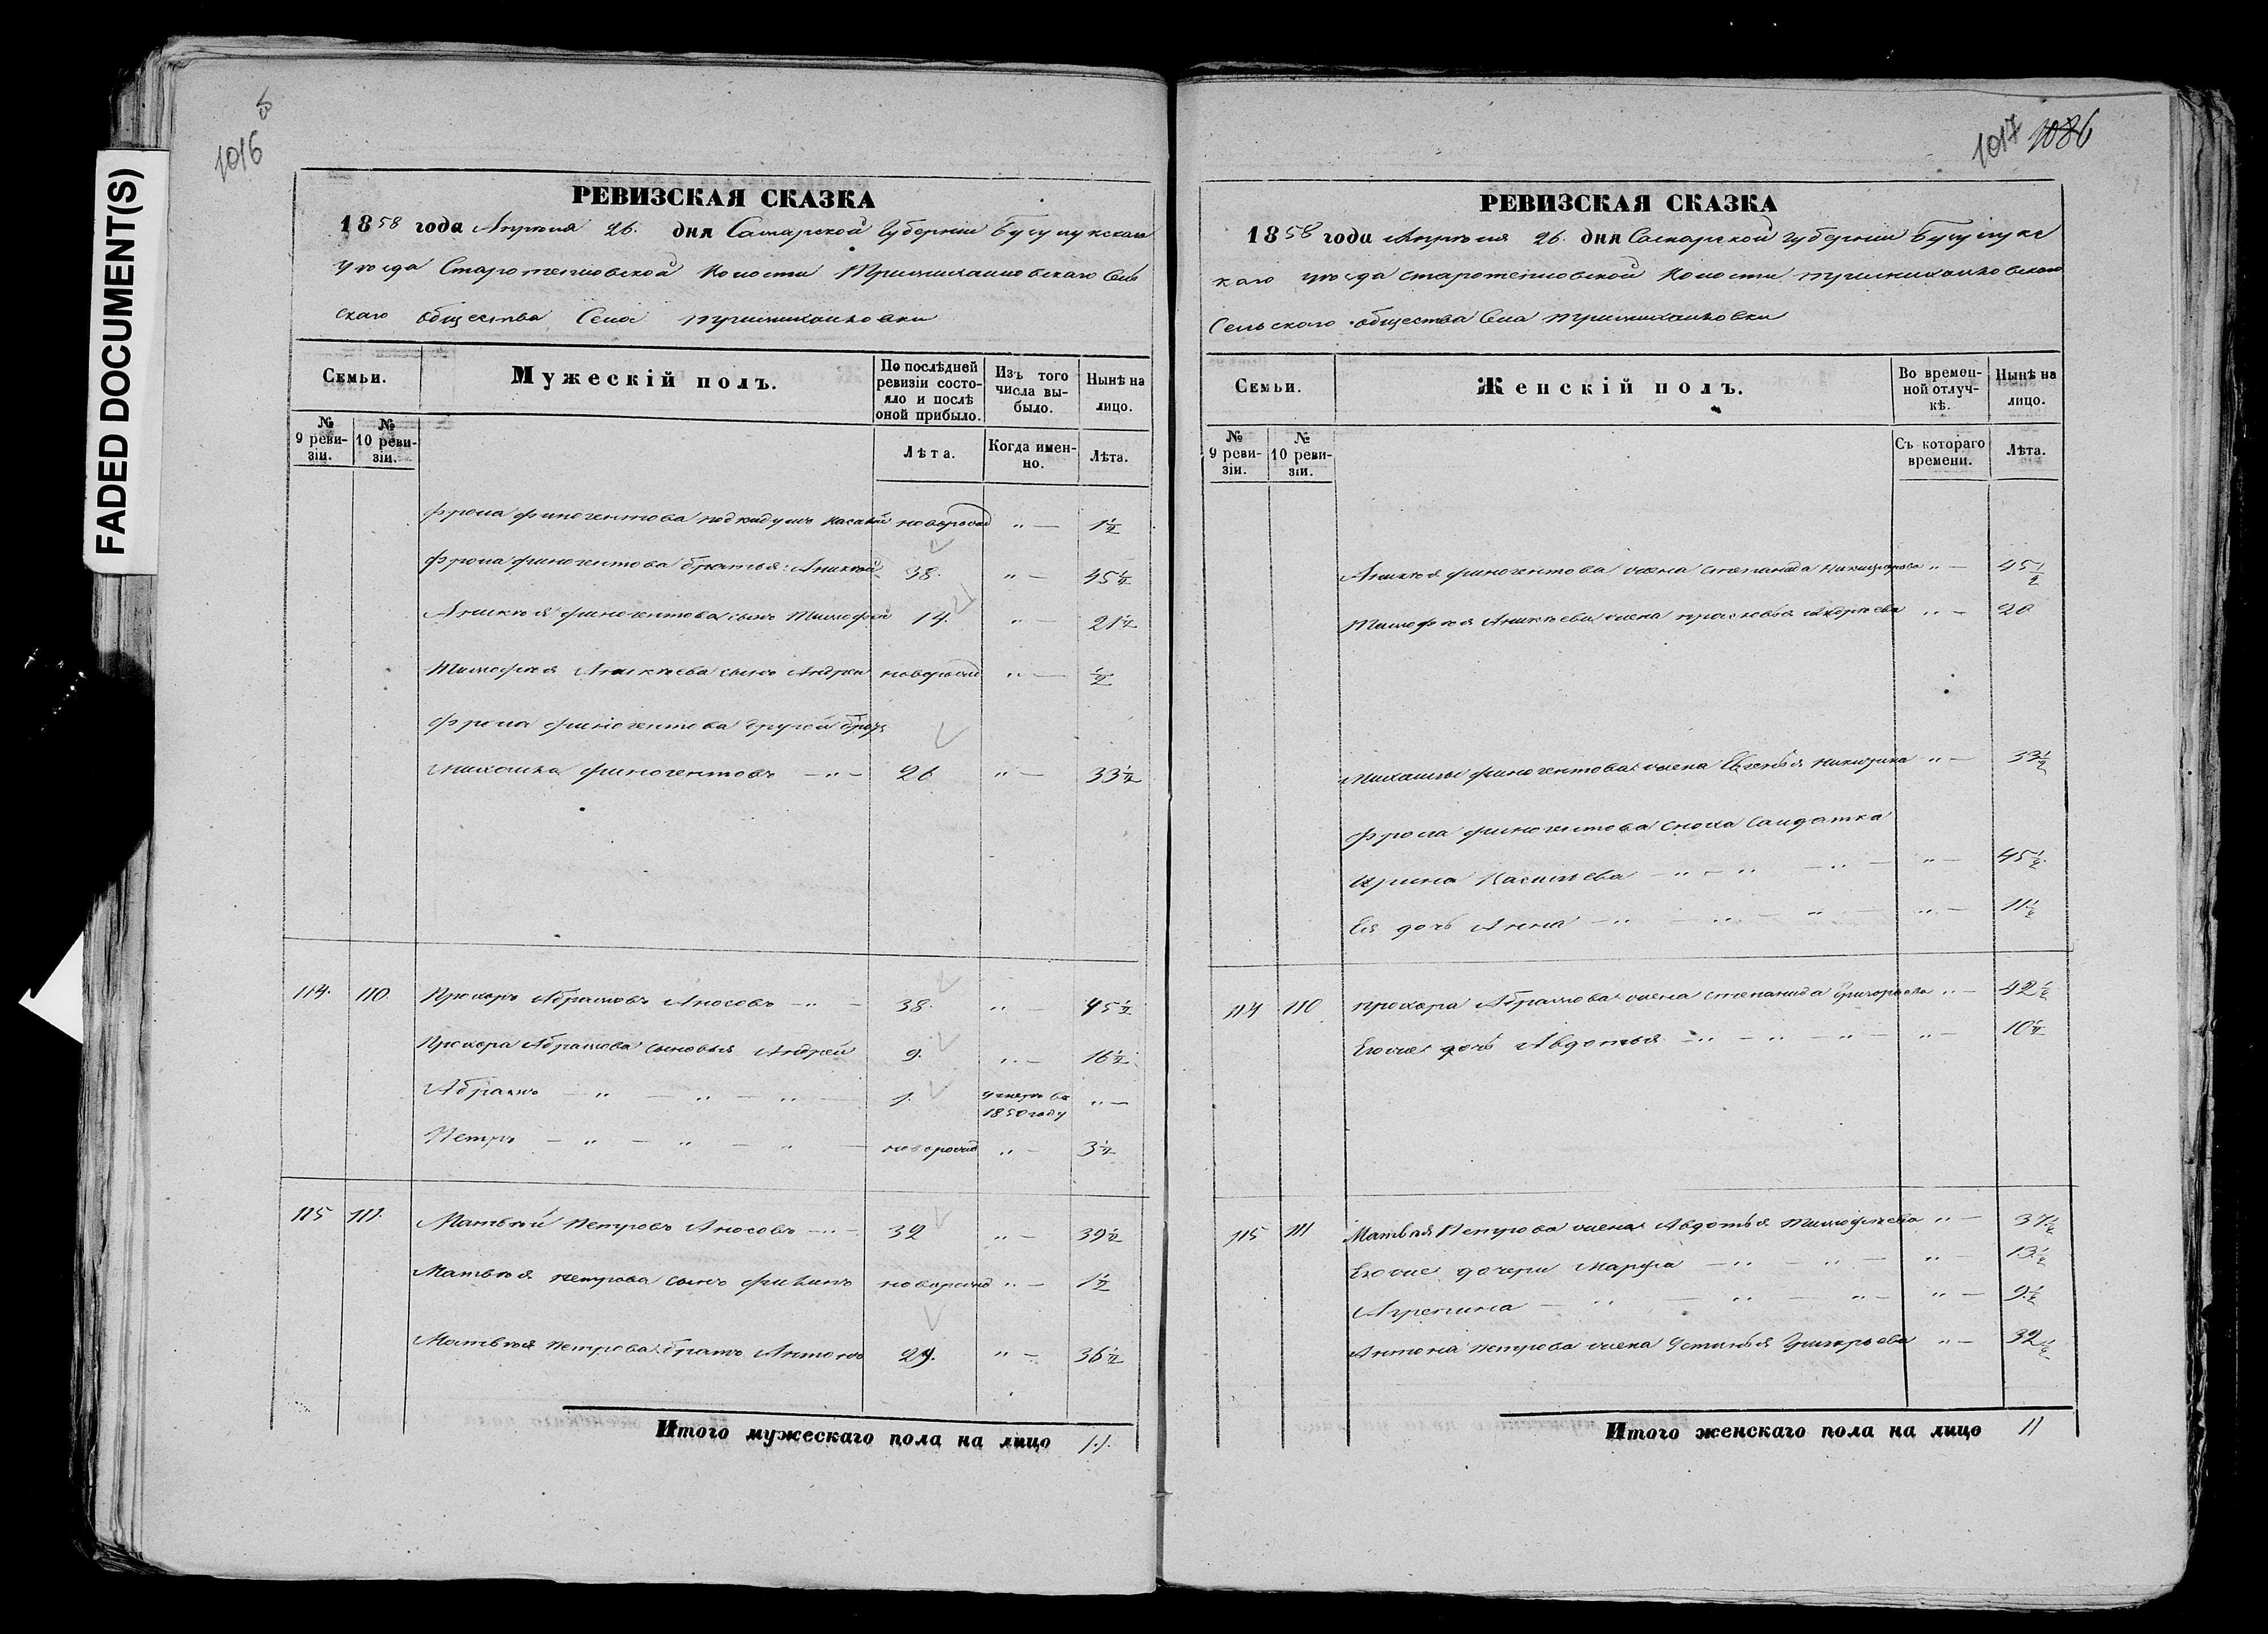 FADED DOCUMENT(S)
1016
РЕВИЗСКАЯ СКАЗКА
1858 года Апреля 26. дня Самарской Губернии Бузулукскаго
уезда Старотепловской Волости Тримихайловскаго Сель
скаго общества Села Тримихайловки
Семьи.
Мужескій полъ.
По послѣдней ревизіи состояло и послѣ оной прибыло.
Изъ того числа выбыло.
Нынѣ на лицо.
№ 9 ревизіи.
№ 10 ревизіи.
Лѣта.
Когда именно.
Лѣта.
Фрола Финогентова подкидышъ новорожд " — 1½
Фрола Финогентова братья: Аникей 38. " — 45½
Аникея Финогентова сынъ Тимофей 14. " — 21½
Тимофея Аникѣева сынъ Андрей новорожд " — ½
Фрола Финогентова другой братъ
Михайла Финогентовъ — " — 26 " — 33½
114. 110. Прохоръ Абрамовъ Аносовъ — " — 38. " — 45½
Прохора Абрамова сыновья Андрей 9. " — 16½
Абрамъ — " — " — " — 1. умеръ въ 1850 году " —
Петръ — " — " — " — новорожд " — 3½
115 111. Матвѣй Петровъ Аносовъ — " — 32 " — 39½
Матвѣя Петрова сынъ Филипъ новорожд " — 1½
Матвѣя Петрова братъ Антонъ 29. " — 36½
Итого мужескаго пола на лицо 11.
1017 1086
РЕВИЗСКАЯ СКАЗКА
1858 года Апрѣля 26. дня Самарской Губернии Бузулукс
каго уѣзда Старотепловской Волости Тримихайловскаго
Сельскаго общества Села Тримихайловки
Семьи.
Женскій полъ.
Во временной отлучкѣ.
Нынѣ на лицо.
№ 9 ревизіи.
№ 10 ревизіи.
Съ котораго времени.
Лѣта.
Аникея Финогентова жена Степанида Никифорова " — 45½
Тимофея Аникѣева жена Прасковья Андреева " — 20
Михайлы Финогентова жена Евгенья " — 33½
Фрола Финогентова сноха Салдатка
Ирина Васильева — " — " — " — " — 45½
Ея дочь Анна — " — " — " — " — 11½
114 110 Прохора Абрамова жена Степанида Григорьева " — 42½
Ево же дочь Авдотья — " — " — " — " — 10½
115 111 Матвѣя Петрова жена Авдотья Тимофеева " — 37½
Ево же дочери Марфа — " — " — " — 13½
Агрепина — " — " — " — " — 9½
Антона Петрова жена Устинья Григорьева " — 32½
Итого женскаго пола на лицо 11